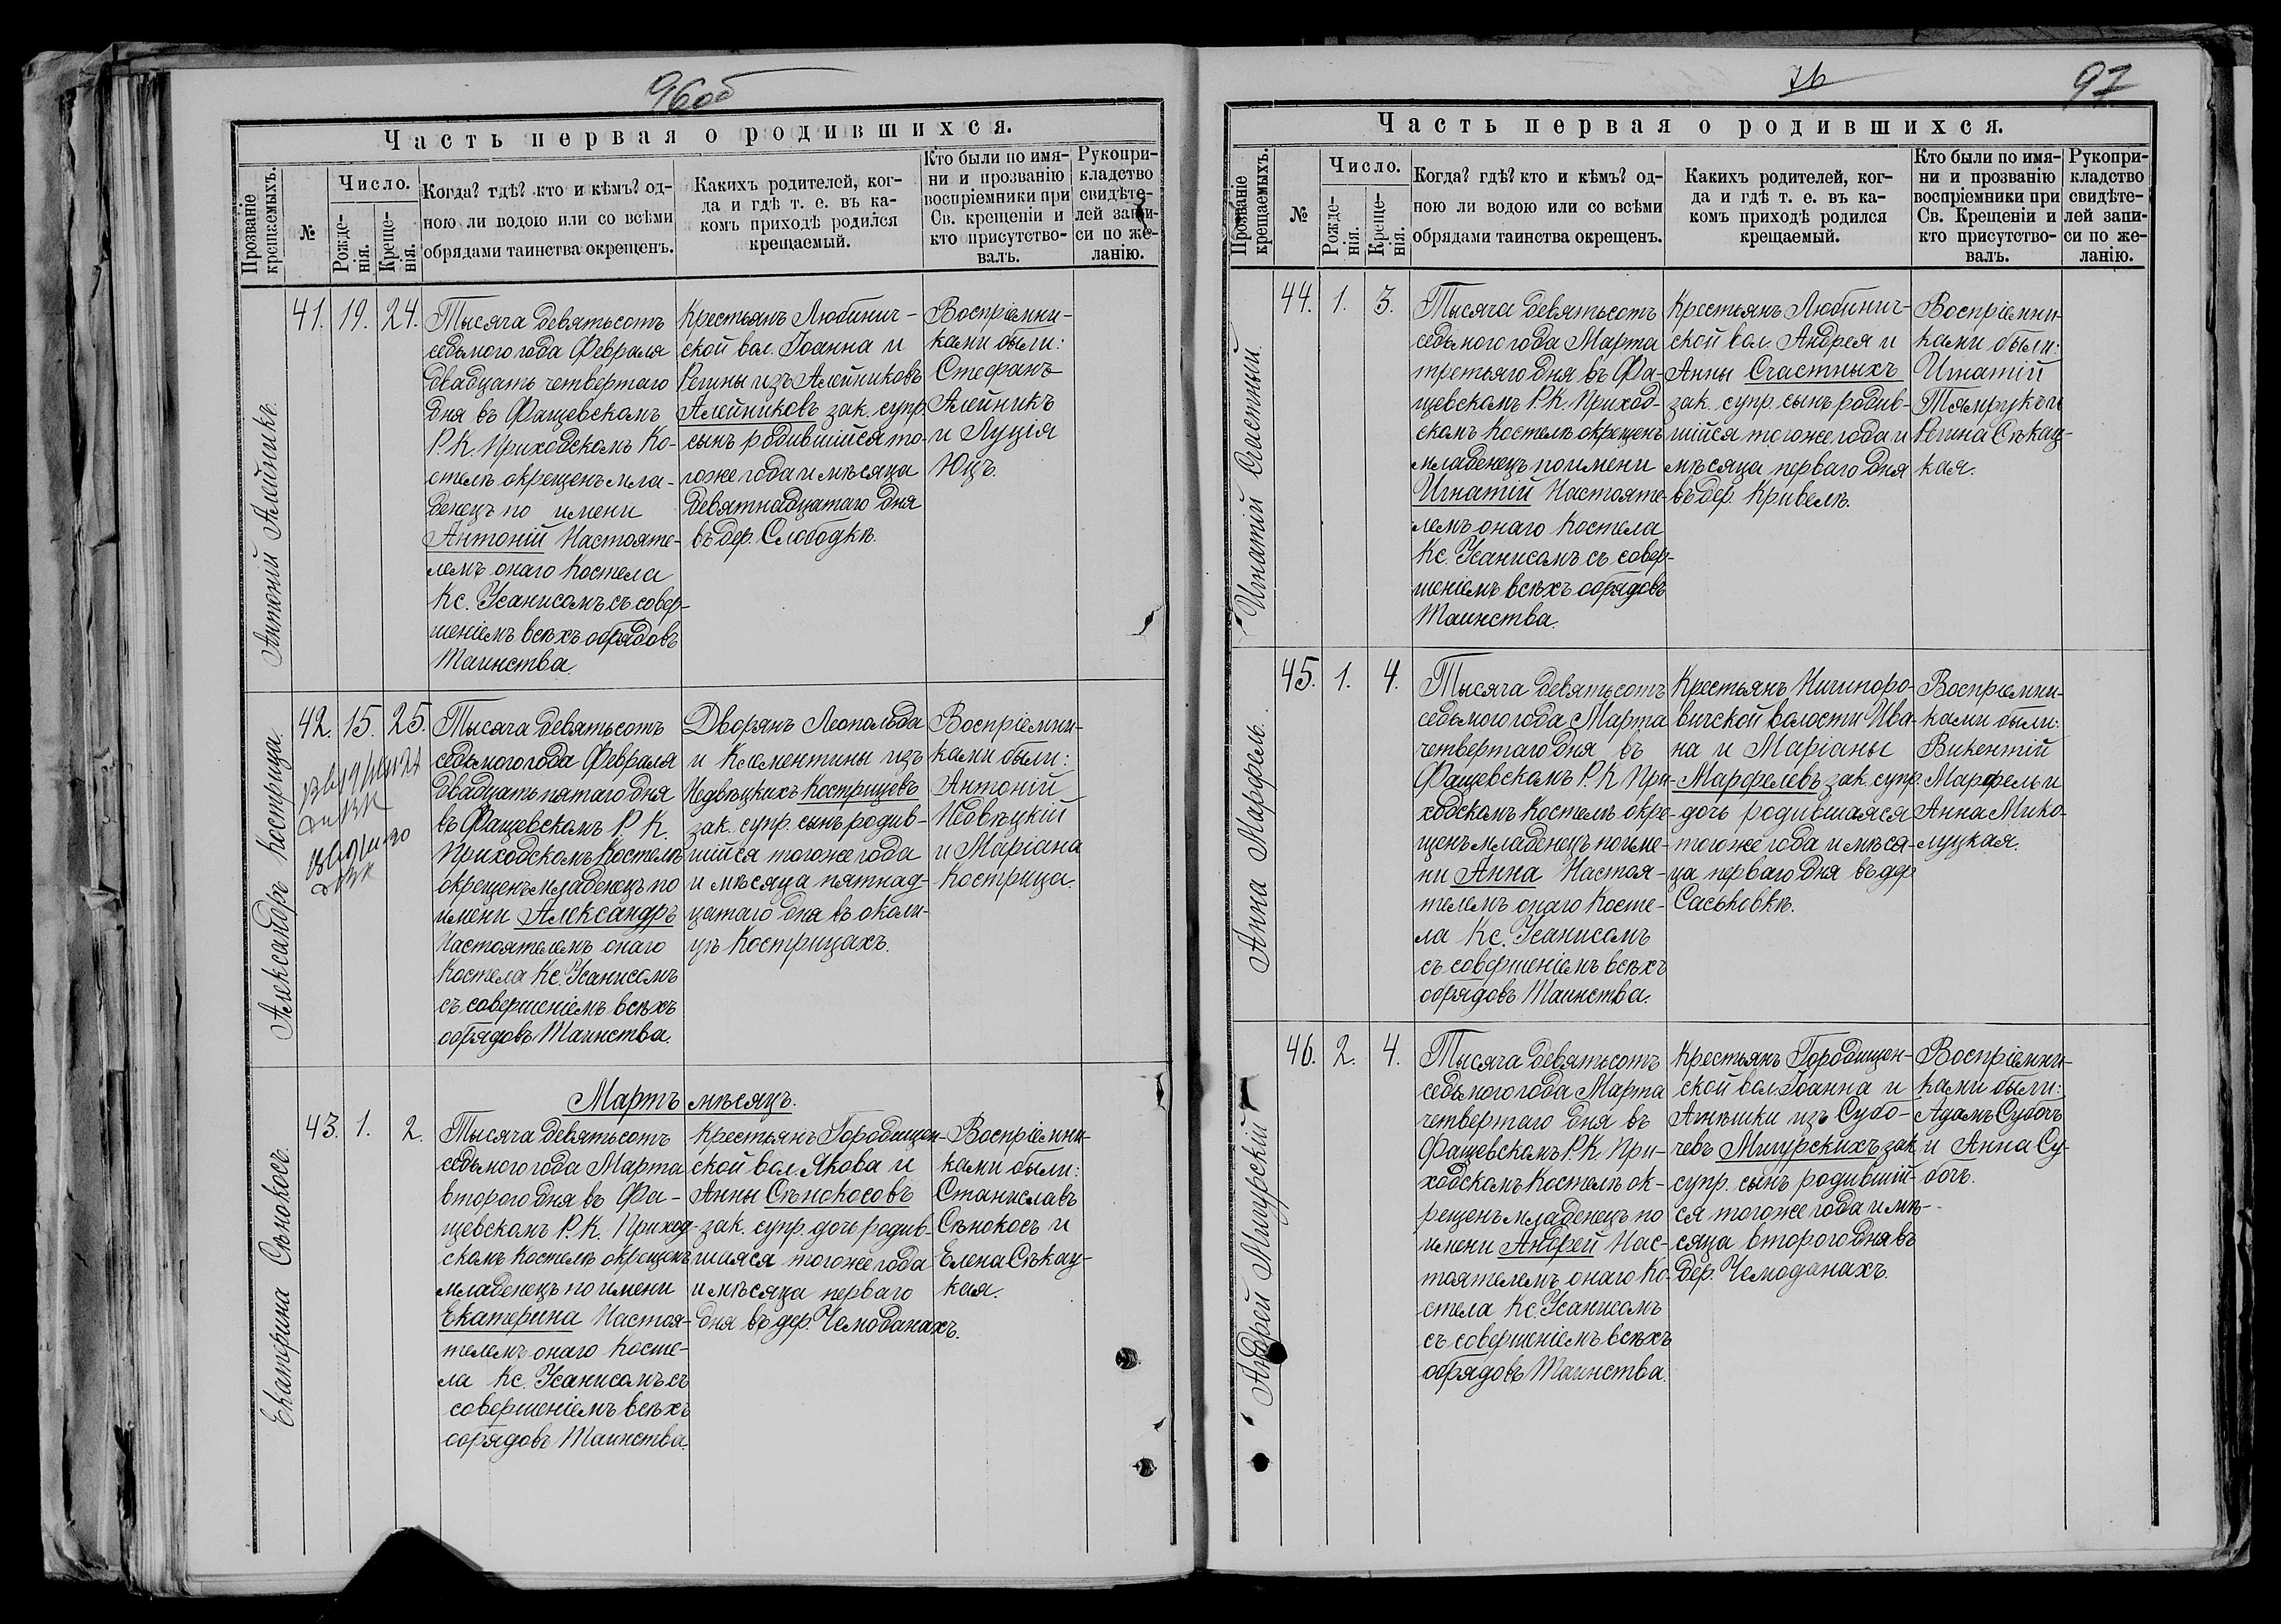 96об
Часть первая о родившихся.
Прозваніе крещаемыхъ.
№
Число.
Рожде-
нія.
Креще-
нія.
Когда? гдѣ? кто и кѣмъ? од-
ною ли водою или со всѣми
обрядами таинства окрещенъ.
Какихъ родителей, ког-
да и гдѣ т. е. въ ка-
комъ приходѣ родился
крещаемый.
Кто были по имя-
ни и прозванію
воспріемники при
Св. крещеніи и
кто присутство-
валъ.
Рукопри-
кладство
свидѣте-
лей запи-
си по же-
ланію.
Антоній Алейникъ.
41. 19. 24.
Тысяча девятьсотъ
седьмого года Февраля
двадцать четвертаго
дня въ Фащевскомъ
Р. К. Приходскомъ Ко-
стелѣ окрещенъ мла-
денецъ по имени
Антоній Настояте-
лемъ онаго Костела
Кс. Усанисомъ съ совер-
шеніемъ всѣхъ обрядовъ
Таинства.
Крестьянъ Любинич-
ской вол. Іоанна и
Регины изъ Алейниковъ
Алейниковъ зак. супр.
сынъ родившійся то-
гоже года и мѣсяца
девятнадцатаго дня
въ дер. Слободкѣ.
Воспріемни-
ками были:
Стефанъ
Алейникъ
и Луція
Юцъ.
Александръ Кострица.
42. 15. 25.
Тысяча девятьсотъ
седьмого года Февраля
двадцать пятаго дня
въ Фащевскомъ Р. К.
Приходскомъ Костелѣ
окрещенъ младенецъ по
имени Александръ
Настоятелемъ онаго
Костела Кс. Усанисомъ
съ совершеніемъ всѣхъ
обрядовъ Таинства.
Дворянъ Леопольда
и Клементины изъ
Недвѣцкихъ Кострицевъ
зак. супр. сынъ родив-
шійся тогоже года
и мѣсяца пятнад-
цатаго дня въ околи-
цѣ Кострицахъ.
Воспріемни-
ками были:
Антоній
Недвѣцкій
и Маріана
Кострица.
Мартъ мѣсяцъ.
Екатерина Сѣнокосъ.
43. 1. 2.
Тысяча девятьсотъ
седьмого года Марта
второго дня въ Фа-
щевскомъ Р. К. Приход-
скомъ Костелѣ окрещенъ
младенецъ по имени
Екатерина Настоя-
телемъ онаго Косте-
ла Кс. Усанисомъ съ
совершеніемъ всѣхъ
обрядовъ Таинства.
Крестьянъ Городищен-
ской вол. Якова и
Анны Сѣнокосовъ
зак. супр. дочь родив-
шаяся тогоже года
и мѣсяца перваго
дня въ дер. Чемоданахъ.
Воспріемни-
ками были:
Станиславъ
Сѣнокосъ и
Елена Сѣкац-
кая.
97
Часть первая о родившихся.
Прозваніе крещаемыхъ.
№
Число.
Рожде-
нія.
Креще-
нія.
Когда? гдѣ? кто и кѣмъ? од-
ною ли водою или со всѣми
обрядами таинства окрещенъ.
Какихъ родителей, ког-
да и гдѣ т. е. въ ка-
комъ приходѣ родился
крещаемый.
Кто были по имя-
ни и прозванію
воспріемники при
Св. Крещеніи и
кто присутство-
валъ.
Рукопри-
кладство
свидѣте-
лей запи-
си по же-
ланію.
Игнатій Счастный.
44. 1. 3.
Тысяча девятьсотъ
седьмого года Марта
третьяго дня въ Фа-
щевскомъ Р. К. Приход-
скомъ Костелѣ окрещенъ
младенецъ по имени
Игнатій Настояте-
лемъ онаго Костела
Кс. Усанисомъ съ совер-
шеніемъ всѣхъ обрядовъ
Таинства.
Крестьянъ Любинич-
ской вол. Андрея и
Анны Счастныхъ
зак. супр. сынъ родив-
шійся тогоже года и
мѣсяца перваго дня
въ дер. Кривелѣ.
Воспріемни-
ками были:
Игнатій
Тямрукъ и
Регина Сѣкац-
кая.
Анна Марфель.
45. 1. 4.
Тысяча девятьсотъ
седьмого года Марта
четвертаго дня въ
Фащевскомъ Р. К. При-
ходскомъ Костелѣ окре-
щенъ младенецъ по име-
ни Анна Настоя-
телемъ онаго Косте-
ла Кс. Усанисомъ
съ совершеніемъ всѣхъ
обрядовъ Таинства.
Крестьянъ Ничипоро-
вичской волости Ива-
на и Маріаны
Марфелевъ зак. супр.
дочь родившаяся
тогоже года и мѣся-
ца перваго дня въ дер.
Саськовкѣ.
Воспріемни-
ками были:
Викентій
Марфель и
Анна Мико-
луцкая.
Андрей Мигурскій
46. 2. 4.
Тысяча девятьсотъ
седьмого года Марта
четвертаго дня въ
Фащевскомъ Р. К. При-
ходскомъ Костелѣ ок-
рещенъ младенецъ по
имени Андрей Нас-
тоятелемъ онаго Ко-
стела Кс. Усанисомъ
съ совершеніемъ всѣхъ
обрядовъ Таинства.
Крестьянъ Городищен-
ской вол. Іоанна и
Анѣшки изъ Субо-
чевъ Мигурскихъ зак.
супр. сынъ родившій-
ся тогоже года и мѣ-
сяца второго дня въ
дер. Чемоданахъ.
Воспріемни-
ками были:
Адамъ Субочъ
и Анна Су-
бочъ.